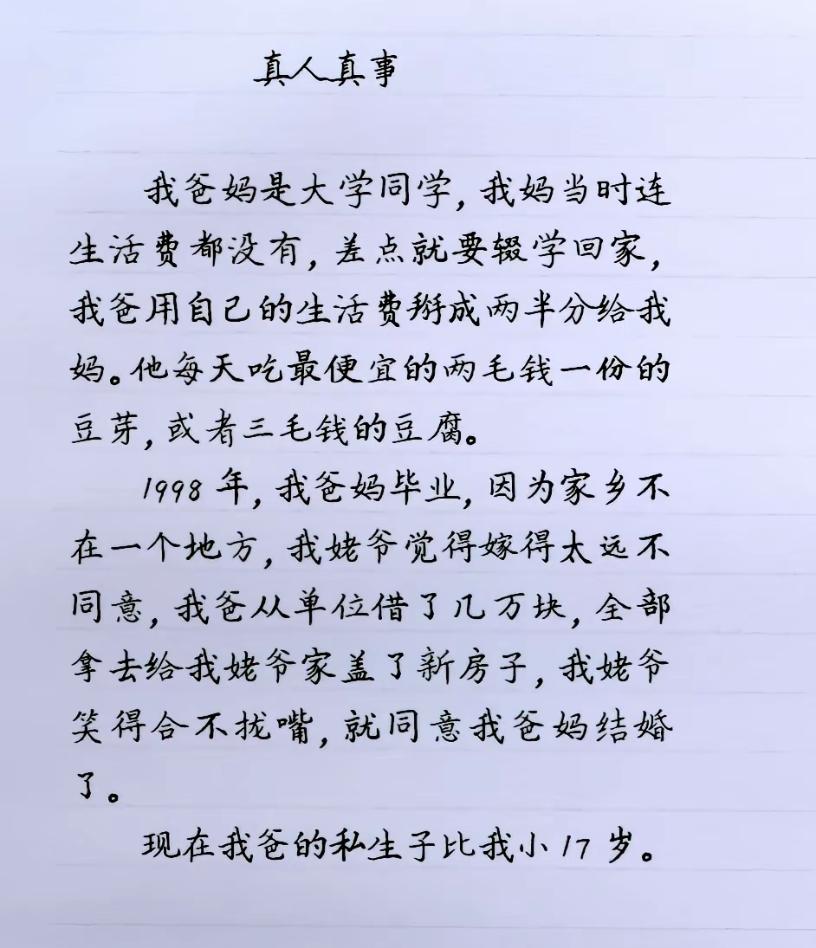 真人真事
我爸妈是大学同学,我妈当时连
生活费都没有,差点就要辍学回家,
我爸用自己的生活费掰成两半分给我
妈。他每天吃最便宜的两毛钱一份的
豆芽,或者三毛钱的豆腐。
1998年,我爸妈毕业,因为家乡不
在一个地方,我姥爷觉得嫁得太远不
同意,我爸从单位借了几万块,全部
拿去给我姥爷家盖了新房子,我姥爷
笑得合不拢嘴,就同意我爸妈结婚
了。
现在我爸的私生子比我小17岁。